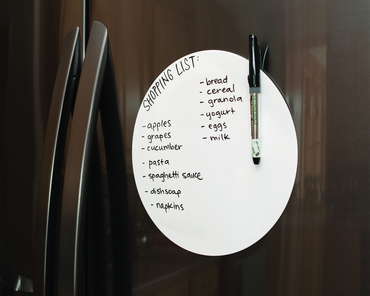 SHOPPING LIST:
- apples
- grapes
- cucumber
- pasta
- spaghetti sauce
- dishsoap
- napkins
- bread
- cereal
- granola
- yogurt
- eggs
- milk